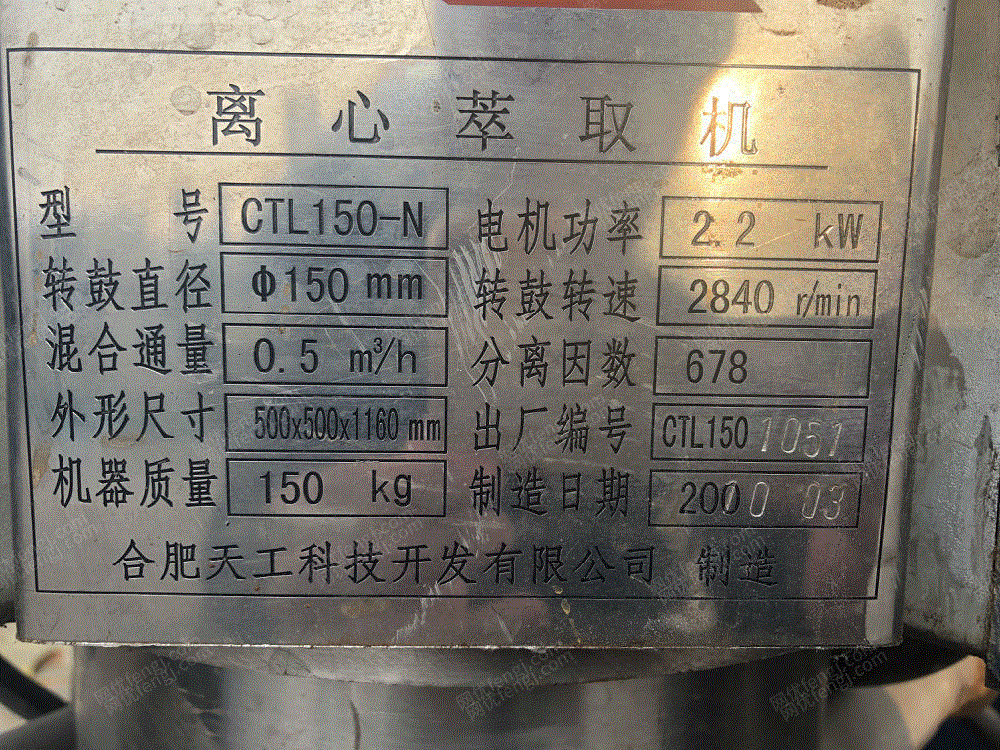 离心萃取机
型号 CTL150-N 电机功率 2.2 kW
转鼓直径 Φ150 mm 转鼓转速 2840 r/min
混合通量 0.5 m³/h 分离因数 678
外形尺寸 500x500x1160 mm 出厂编号 CTL150 1051
机器质量 150 kg 制造日期 2000 03
合肥天工科技开发有限公司 制造